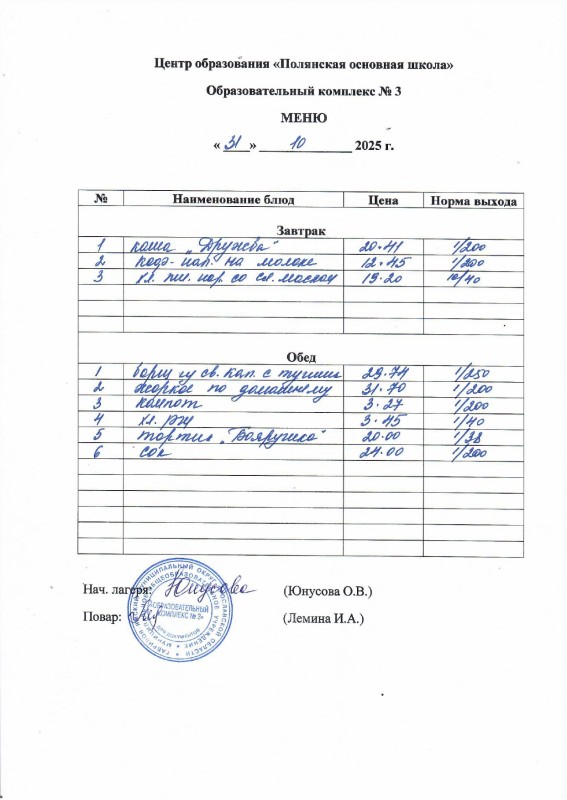 Центр образования «Полянская основная школа»
Образовательный комплекс № 3
МЕНЮ
« 31 » 10 2025 г.
№ Наименование блюд Цена Норма выхода
Завтрак
1 каша „Дружба" 20.41 1/200
2 кофе-нап. на молоке 12.45 1/200
3 хл. пш. нар. со сл. маслом 19.20 10/40
Обед
1 борщ из св. кап. с тушен 29.74 1/250
2 жаркое по домашнему 31.70 1/200
3 компот 3.27 1/200
4 хл. рж 3.45 1/40
5 тортик „Боярушка" 20.00 1/38
6 сок 24.00 1/200
Нач. лагеря: Юнусова (Юнусова О.В.)
Повар: (Лемина И.А.)
ОБРАЗОВАТЕЛЬНЫЙ
КОМПЛЕКС № 3»
ДЛЯ ДОКУМЕНТОВ